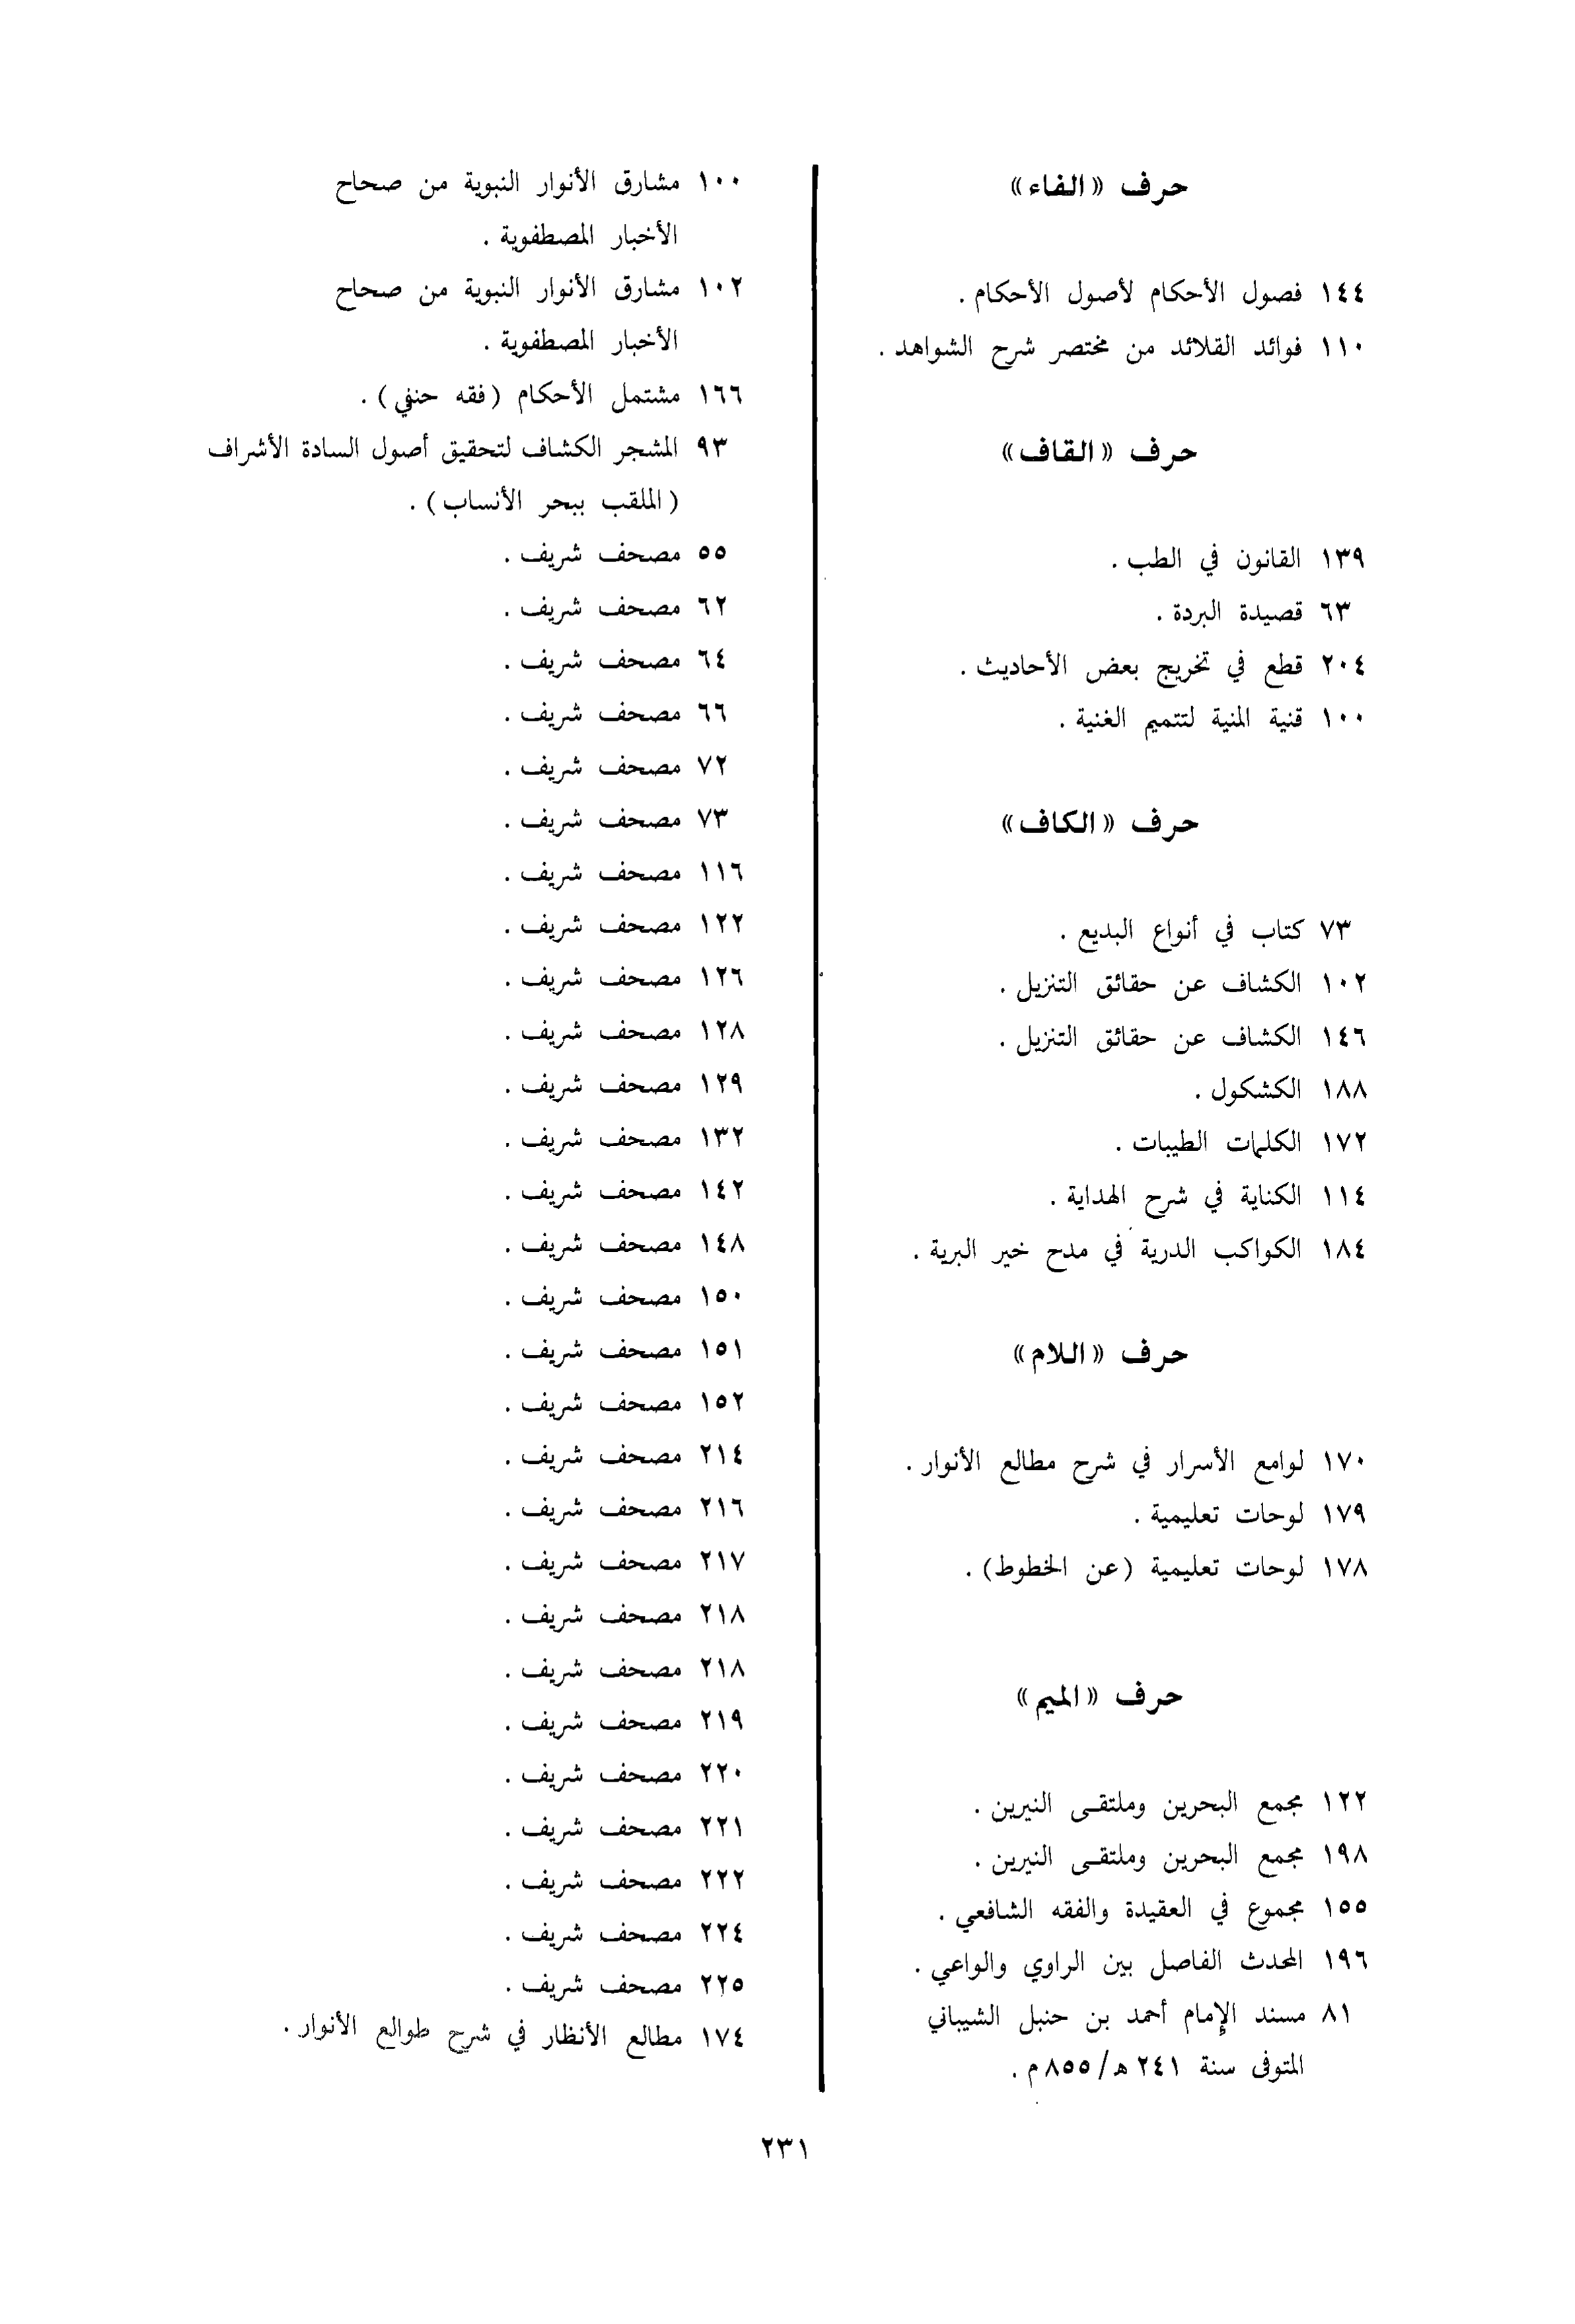 حرف «الفاء»
١٤٤ فصول الأحكام لأصول الأحكام .
١١٠ فوائد القلائد من مختصر شرح الشواهد .
حرف «القاف»
١٣٩ القانون في الطب .
٦٣ قصيدة البردة .
٢٠٤ قطع في تخريج بعض الأحاديث .
١٠٠ قنية المنية لتتميم الغنية .
حرف «الكاف»
٧٣ كتاب في أنواع البديع .
١٠٢ الكشاف عن حقائق التنزيل .
١٤٦ الكشاف عن حقائق التنزيل .
١٨٨ الكشكول .
١٧٢ الكلمات الطيبات .
١١٤ الكناية في شرح الهداية .
١٨٤ الكواكب الدرية في مدح خير البرية .
حرف «اللام»
١٧٠ لوامع الأسرار في شرح مطالع الأنوار .
١٧٩ لوحات تعليمية .
١٧٨ لوحات تعليمية (عن الخطوط) .
حرف «الميم»
١٢٢ مجمع البحرين وملتقى النيرين .
١٩٨ مجمع البحرين وملتقى النيرين .
١٥٥ مجموع في العقيدة والفقه الشافعي .
١٩٦ المحدث الفاصل بين الراوي والواعي .
٨١ مسند الإمام أحمد بن حنبل الشيباني
المتوفى سنة ٢٤١ هـ/٨٥٥ م .
١٠٠ مشارق الأنوار النبوية من صحاح
الأخبار المصطفوية .
١٠٢ مشارق الأنوار النبوية من صحاح
الأخبار المصطفوية .
١٦٦ مشتمل الأحكام (فقه حنفي) .
٩٣ المشجر الكشاف لتحقيق أصول السادة الأشراف
(الملقب ببحر الأنساب) .
٥٥ مصحف شريف .
٦٢ مصحف شريف .
٦٤ مصحف شريف .
٦٦ مصحف شريف .
٧٢ مصحف شريف .
٧٣ مصحف شريف .
١١٦ مصحف شريف .
١٢٢ مصحف شريف .
١٢٦ مصحف شريف .
١٢٨ مصحف شريف .
١٢٩ مصحف شريف .
١٣٢ مصحف شريف .
١٤٢ مصحف شريف .
١٤٨ مصحف شريف .
١٥٠ مصحف شريف .
١٥١ مصحف شريف .
١٥٢ مصحف شريف .
٢١٤ مصحف شريف .
٢١٦ مصحف شريف .
٢١٧ مصحف شريف .
٢١٨ مصحف شريف .
٢١٨ مصحف شريف .
٢١٩ مصحف شريف .
٢٢٠ مصحف شريف .
٢٢١ مصحف شريف .
٢٢٢ مصحف شريف .
٢٢٤ مصحف شريف .
٢٢٥ مصحف شريف .
١٧٤ مطالع الأنظار في شرح طوالع الأنوار .
٢٣١